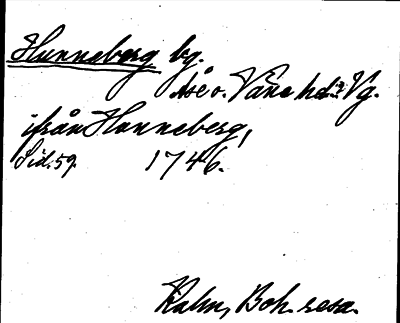 Hunneberg bg.
Åse o. Väne hd: Vg.
ifrån Hunneberg,
Sid. 59. 1746.
Kalm, Boh. resa.